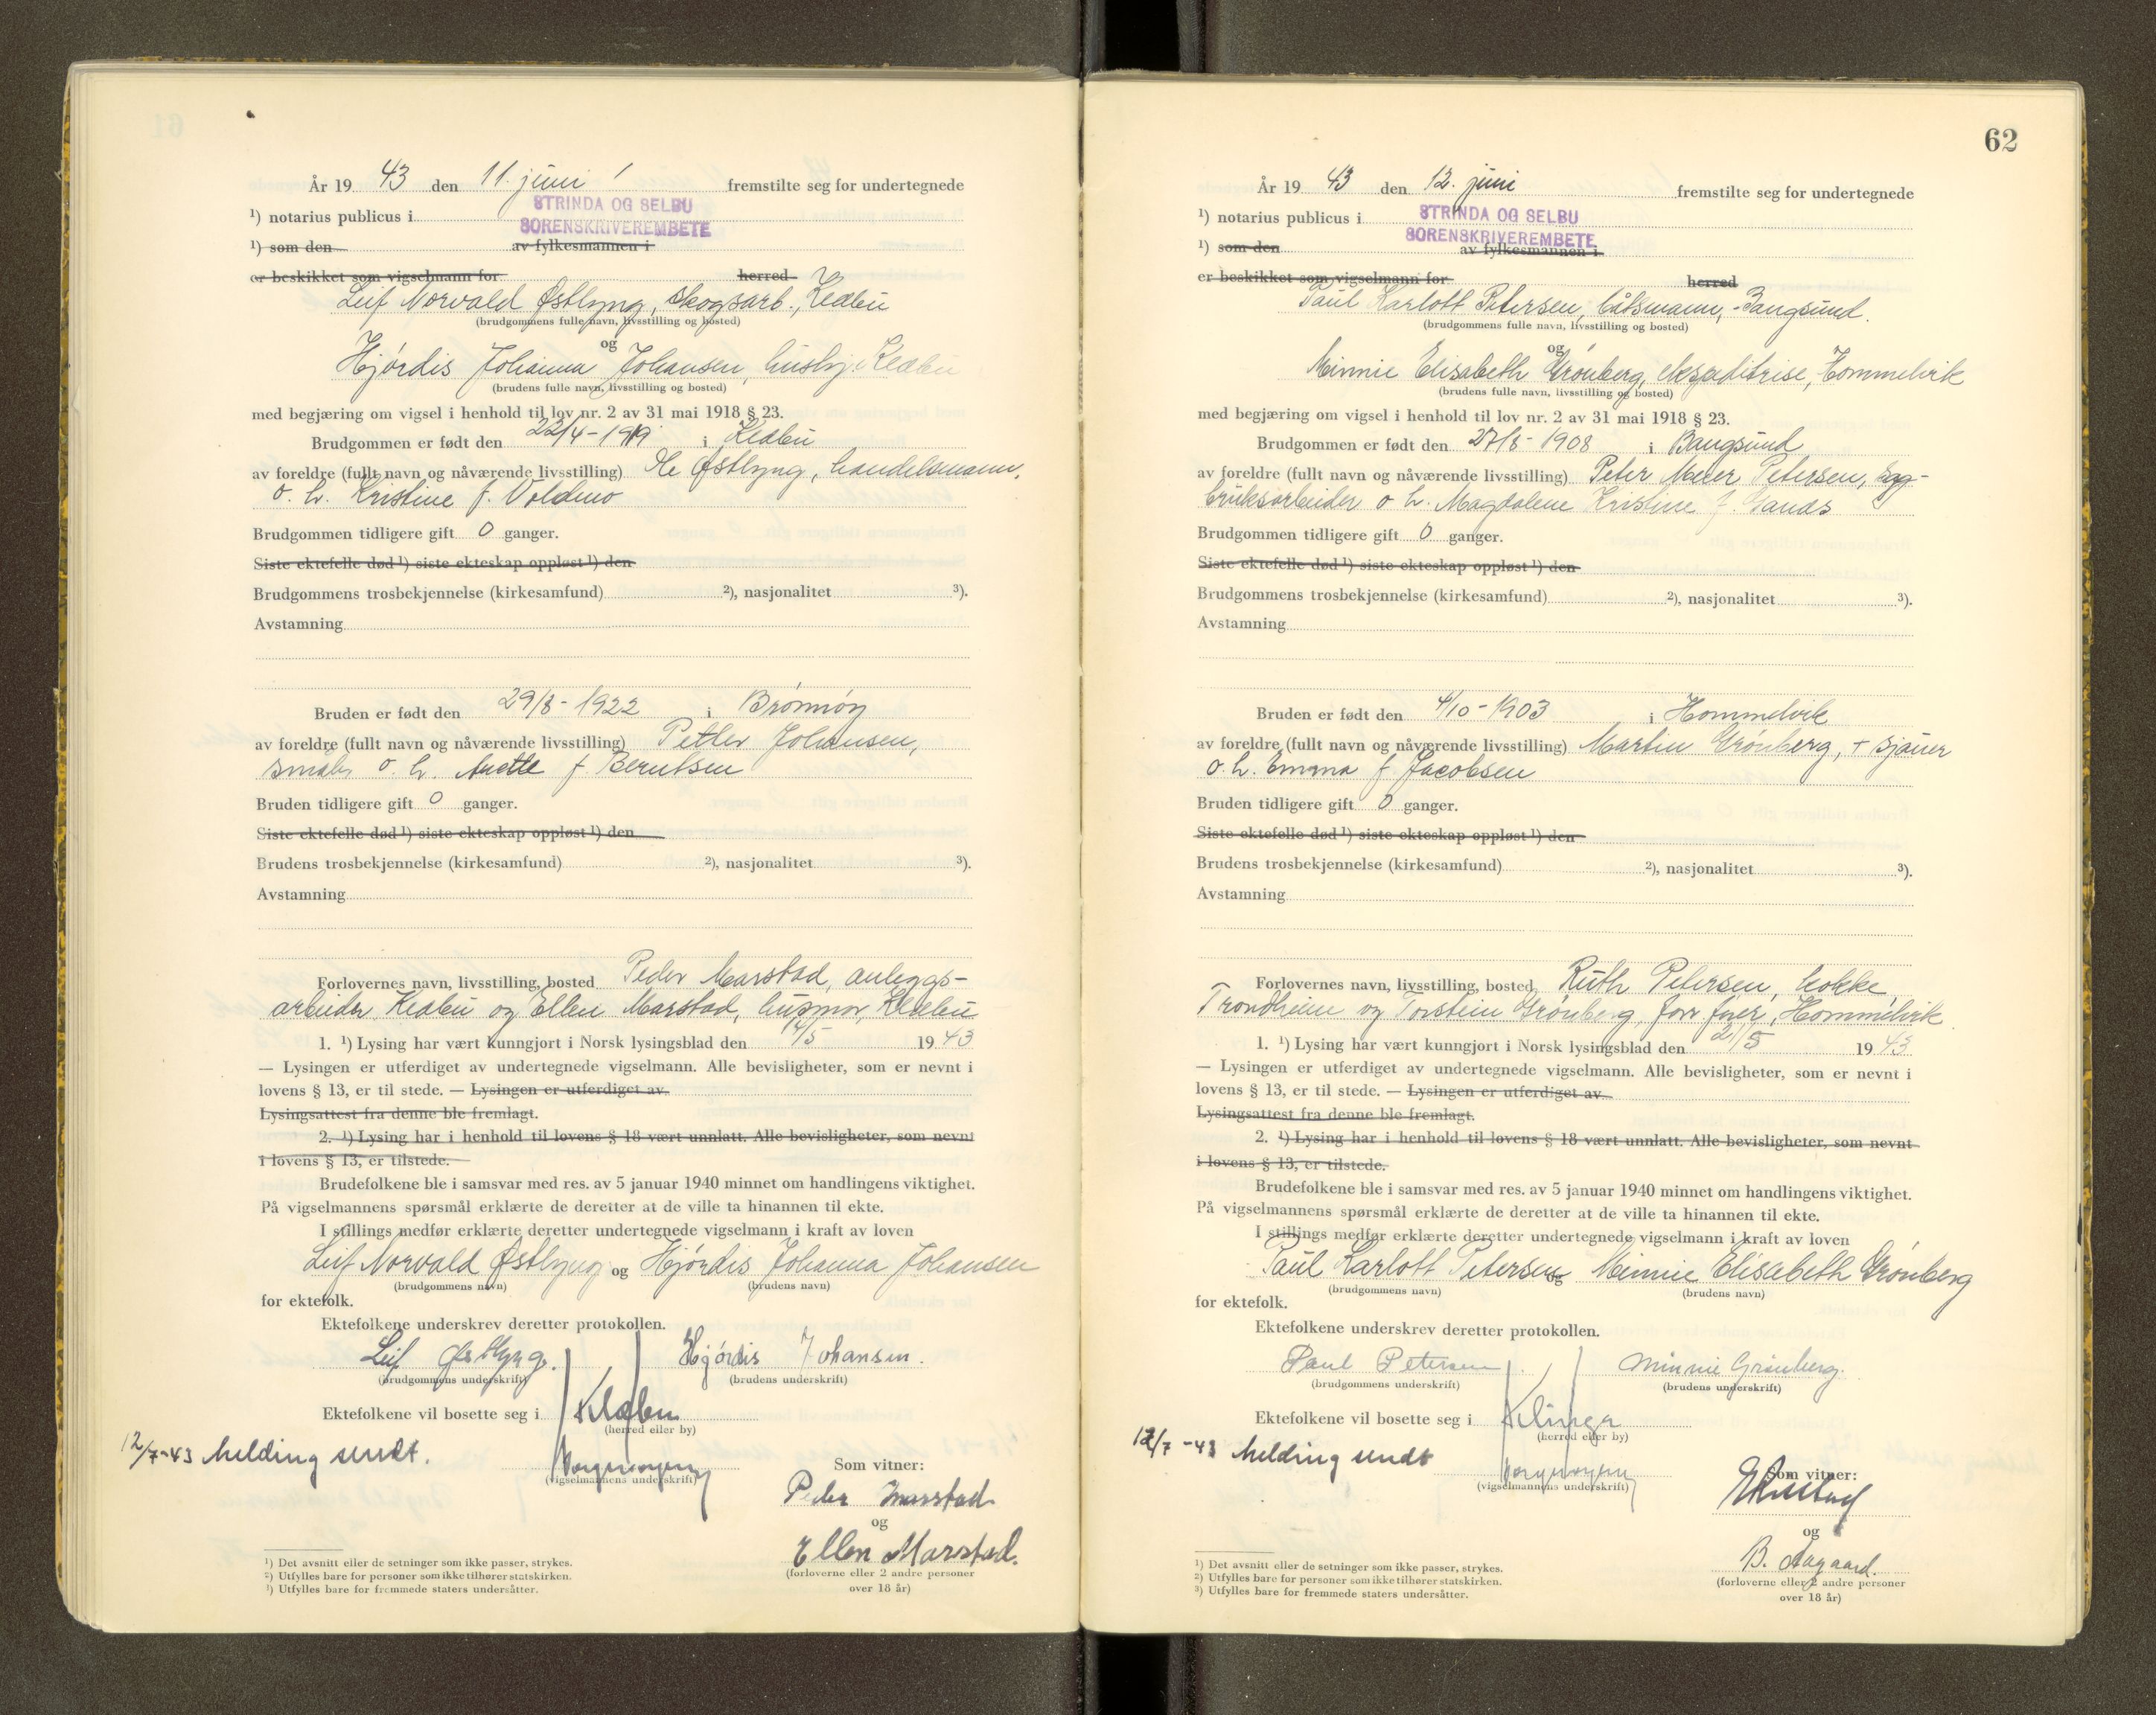 År 19 43 den 11. juni fremstilte seg for undertegnede
¹) notarius publicus i STRINDA OG SELBU
SORENSKRIVEREMBETE
¹) som den av fylkesmannen i
er beskikket som vigselmann for herred
Leif Norvald Østbyng, skogsarb., Klæbu
(brudgommens fulle navn, livsstilling og bosted)
og
Hjördis Johanna Johansen, hushj. Klæbu
(brudens fulle navn, livsstilling og bosted)
med begjæring om vigsel i henhold til lov nr. 2 av 31 mai 1918 § 23.
Brudgommen er født den 22/4-1919 i Klæbu
av foreldre (fullt navn og nåværende livsstilling) Ole Østbyng, handelsmann,
o. h. Kristine f. Voldmo
Brudgommen tidligere gift 0 ganger.
Siste ektefelle død ¹) siste ekteskap oppløst ¹) den
Brudgommens trosbekjennelse (kirkesamfund) ²), nasjonalitet ³).
Avstamning
Bruden er født den 29/8-1922 i Brønnøy
av foreldre (fullt navn og nåværende livsstilling) Petter Johansen,
småbr. o. h. Anette f Berntsen
Bruden tidligere gift 0 ganger.
Siste ektefelle død ¹) siste ekteskap oppløst ¹) den
Brudens trosbekjennelse (kirkesamfund) ²), nasjonalitet ³).
Avstamning
Forlovernes navn, livsstilling, bosted Peder Marstad, anleggs-
arbeider, Klæbu og Ellen Marstad, husmor, Klæbu
1. ¹) Lysing har vært kunngjort i Norsk lysingsblad den 14/5 19 43
— Lysingen er utferdiget av undertegnede vigselmann. Alle bevisligheter, som er nevnt i
lovens § 13, er til stede. — Lysingen er utferdiget av
Lysingsattest fra denne ble fremlagt.
2. ¹) Lysing har i henhold til lovens § 18 vært unnlatt. Alle bevisligheter, som nevnt
i lovens § 13, er tilstede.
Brudefolkene ble i samsvar med res. av 5 januar 1940 minnet om handlingens viktighet.
På vigselmannens spørsmål erklærte de deretter at de ville ta hinannen til ekte.
I stillings medfør erklærte deretter undertegnede vigselmann i kraft av loven
Leif Norvald Østbyng og Hjördis Johanna Johansen
(brudgommens navn) (brudens navn)
for ektefolk.
Ektefolkene underskrev deretter protokollen.
Leif Østbyng. Hjördis Johansen.
(brudgommens underskrift) (brudens underskrift)
Ektefolkene vil bosette seg i Klæbu
(herred eller by)
12/7-43 Melding sendt.
(vigselmannens underskrift)
Som vitner:
Peder Marstad
og
Ellen Marstad.
(forloverne eller 2 andre personer
over 18 år)
¹) Det avsnitt eller de setninger som ikke passer, strykes.
²) Utfylles bare for personer som ikke tilhører statskirken.
³) Utfylles bare for fremmede staters undersåtter.
62
År 19 43 den 12. juni fremstilte seg for undertegnede
¹) notarius publicus i STRINDA OG SELBU
SORENSKRIVEREMBETE
¹) som den av fylkesmannen i
er beskikket som vigselmann for herred
Paul Karlott Petersen, båtsmann, Bangsund.
(brudgommens fulle navn, livsstilling og bosted)
og
Minnie Elisabeth Grönberg, ekspeditrise, Hommelvik
(brudens fulle navn, livsstilling og bosted)
med begjæring om vigsel i henhold til lov nr. 2 av 31 mai 1918 § 23.
Brudgommen er født den 27/8-1908 i Bangsund
av foreldre (fullt navn og nåværende livsstilling) Peter Meier Petersen,
bruksarbeider o h. Magdalene Kristine f.
Brudgommen tidligere gift 0 ganger.
Siste ektefelle død ¹) siste ekteskap oppløst ¹) den
Brudgommens trosbekjennelse (kirkesamfund) ²), nasjonalitet ³).
Avstamning
Bruden er født den 4/10-1903 i Hommelvik
av foreldre (fullt navn og nåværende livsstilling) Martin Grönberg, + sjauer
o. h. Emma f Jacobsen
Bruden tidligere gift 0 ganger.
Siste ektefelle død ¹) siste ekteskap oppløst ¹) den
Brudens trosbekjennelse (kirkesamfund) ²), nasjonalitet ³).
Avstamning
Forlovernes navn, livsstilling, bosted Ruth Petersen, kokke,
Trondheim og Torstein Grönberg, forr. fører, Hommelvik
1. ¹) Lysing har vært kunngjort i Norsk lysingsblad den 21/5 19 43
— Lysingen er utferdiget av undertegnede vigselmann. Alle bevisligheter, som er nevnt i
lovens § 13, er til stede. — Lysingen er utferdiget av
Lysingsattest fra denne ble fremlagt.
2. ¹) Lysing har i henhold til lovens § 18 vært unnlatt. Alle bevisligheter, som nevnt
i lovens § 13, er tilstede.
Brudefolkene ble i samsvar med res. av 5 januar 1940 minnet om handlingens viktighet.
På vigselmannens spørsmål erklærte de deretter at de ville ta hinannen til ekte.
I stillings medfør erklærte deretter undertegnede vigselmann i kraft av loven
Paul Karlott Petersen og Minnie Elisabeth Grönberg
(brudgommens navn) (brudens navn)
for ektefolk.
Ektefolkene underskrev deretter protokollen.
Paul Petersen Minnie Grönberg.
(brudgommens underskrift) (brudens underskrift)
Ektefolkene vil bosette seg i Klinga
(herred eller by)
12/7-43 Melding sendt
(vigselmannens underskrift)
Som vitner:
og
B. Aagaard.
(forloverne eller 2 andre personer
over 18 år)
¹) Det avsnitt eller de setninger som ikke passer, strykes.
²) Utfylles bare for personer som ikke tilhører statskirken.
³) Utfylles bare for fremmede staters undersåtter.